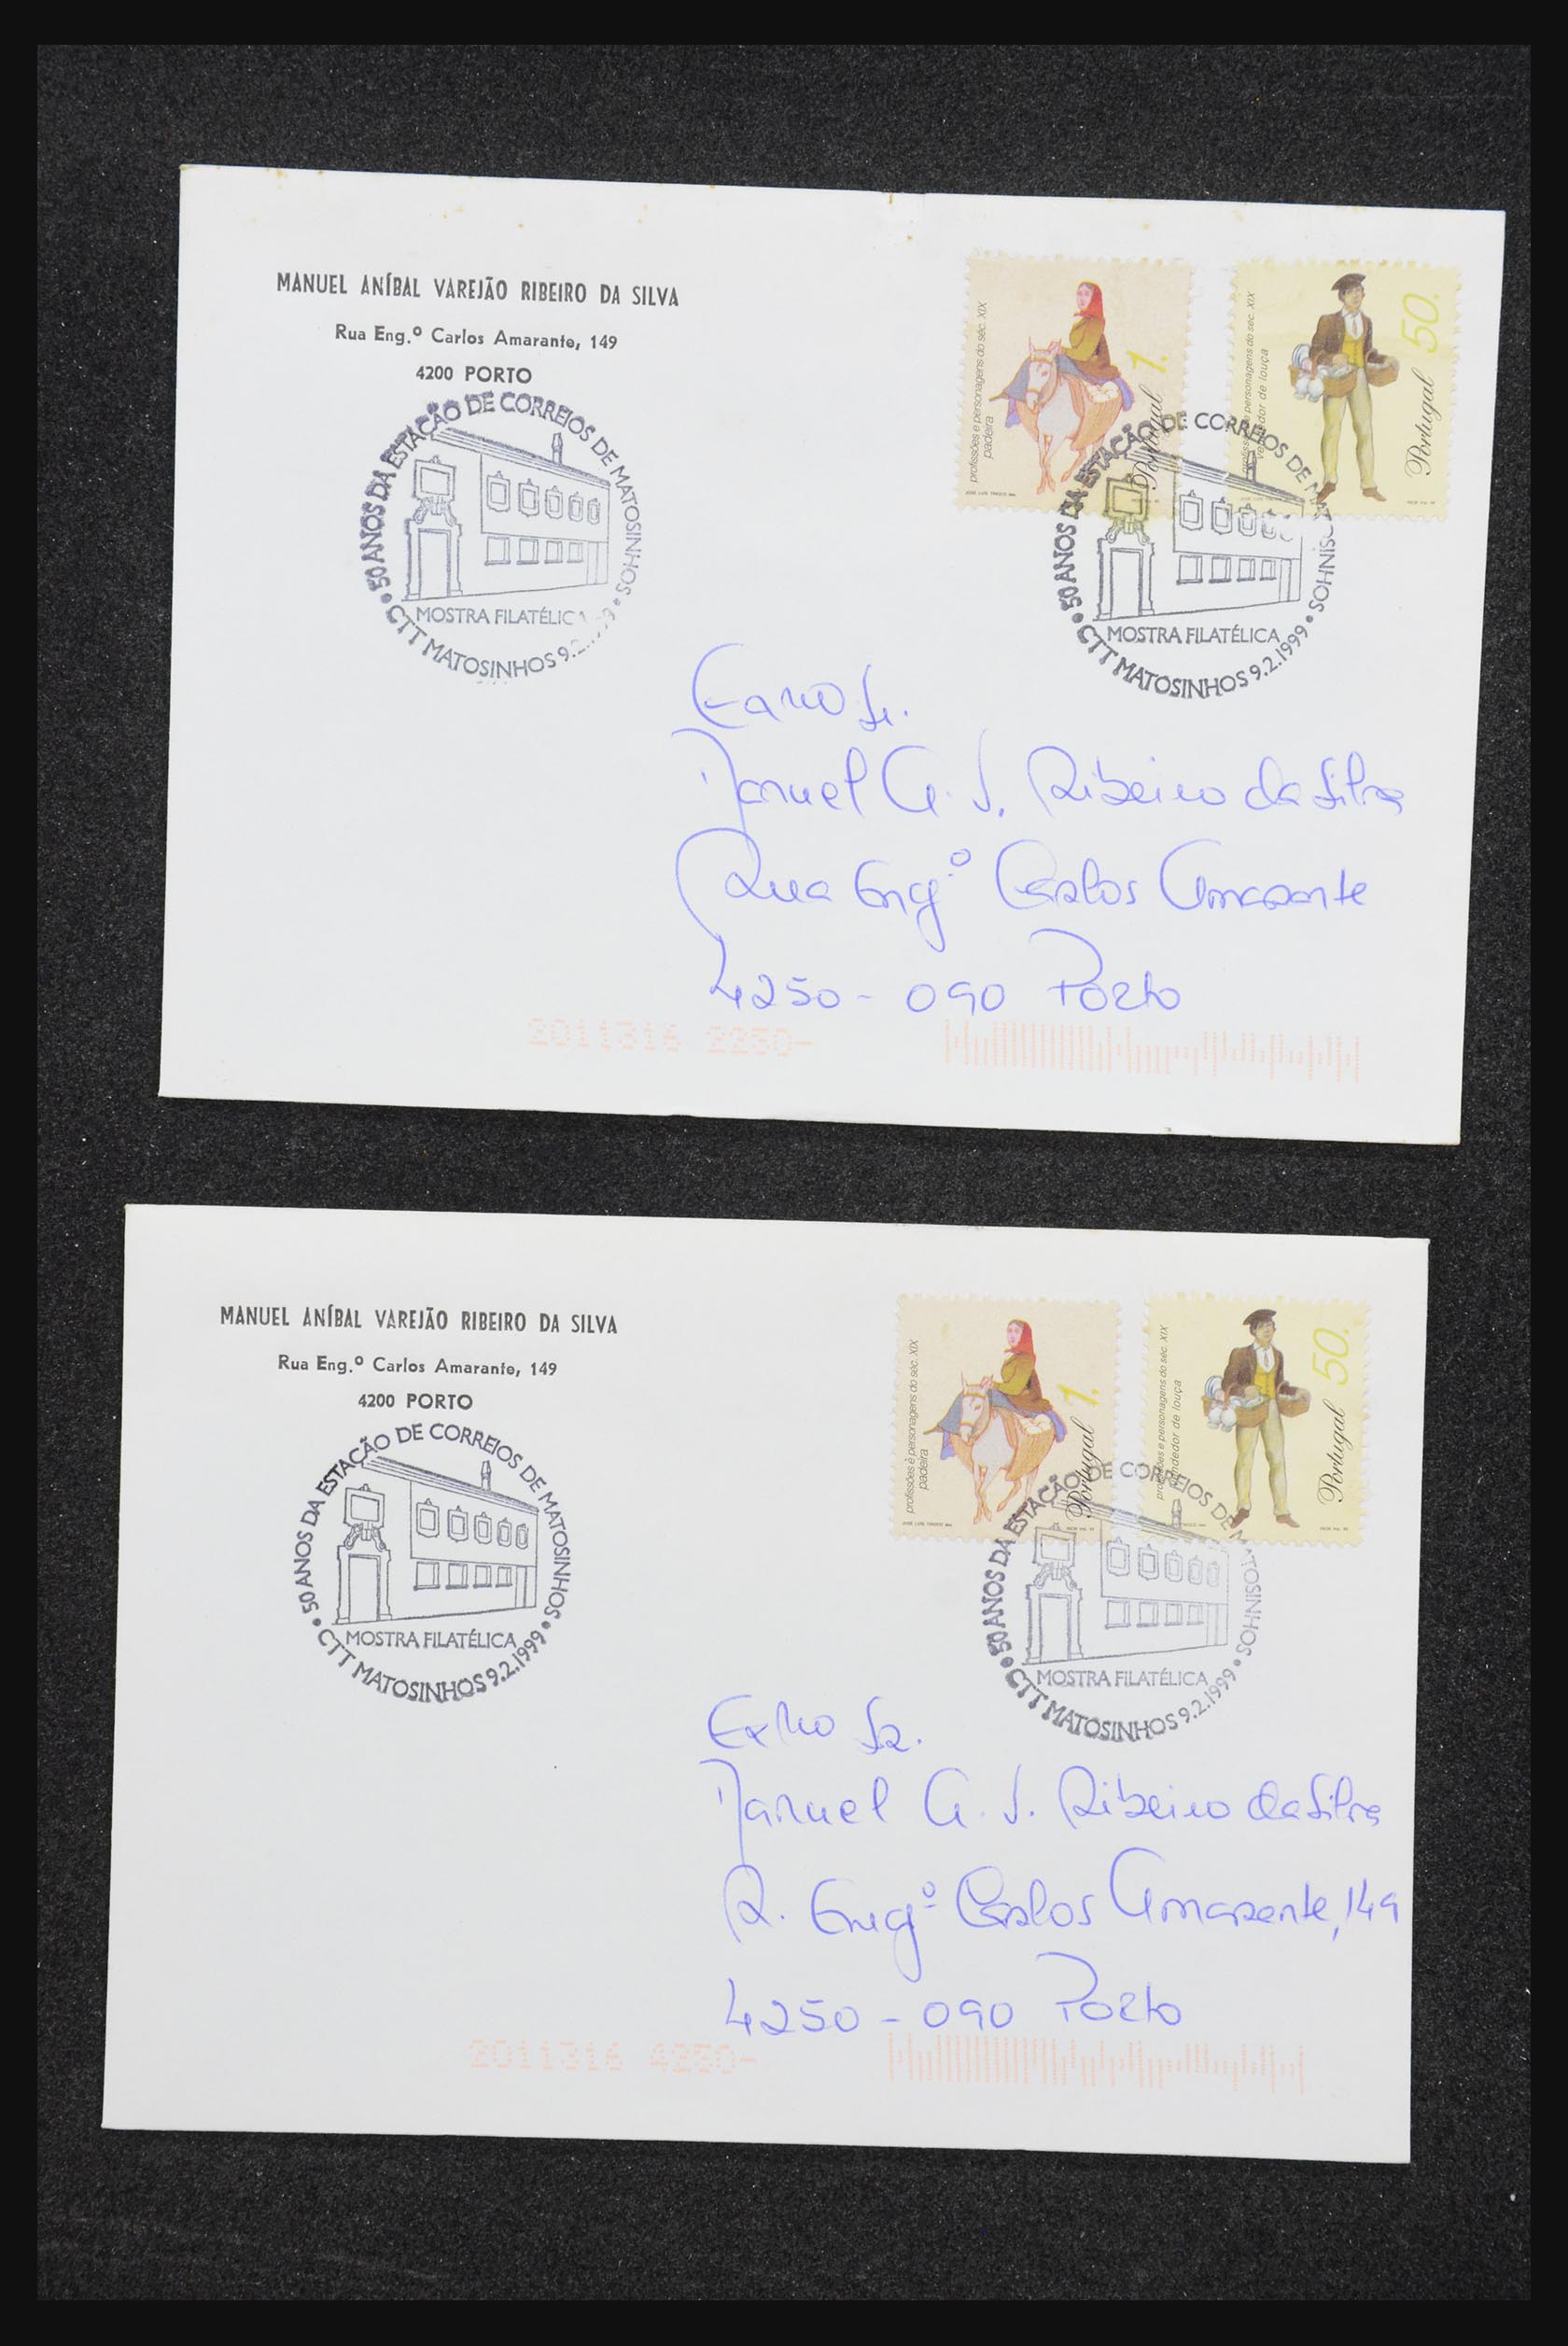 MANUEL ANÍBAL VAREJÃO RIBEIRO DA SILVA
Rua Eng.º Carlos Amarante, 149
4200 PORTO
50 ANOS DA ESTAÇÃO DE CORREIOS DE MATOSINHOS
MOSTRA FILATÉLICA
CTT MATOSINHOS 9.2.
profissões e personagens do séc. XIX
padeira
1.
Portugal
profissões e personagens do séc. XIX
vendedor de louça
50.
Portugal
50 ANOS DA ESTAÇÃO DE CORREIOS DE MATOSINHOS
MOSTRA FILATÉLICA
CTT MATOSINHOS 9.2.1999
Exmo Sr.
Manuel A. V. Ribeiro da Silva
Rua Engº Carlos Amarante
4250-090 Porto
2011316 2250-
MANUEL ANÍBAL VAREJÃO RIBEIRO DA SILVA
Rua Eng.º Carlos Amarante, 149
4200 PORTO
50 ANOS DA ESTAÇÃO DE CORREIOS DE MATOSINHOS
MOSTRA FILATÉLICA
CTT MATOSINHOS 9.2.1999
profissões e personagens do séc. XIX
padeira
JOSÉ LUÍS TINOCO
1.
Portugal
profissões e personagens do séc. XIX
vendedor de louça
50.
Portugal
50 ANOS DA ESTAÇÃO DE CORREIOS DE MATOSINHOS
MOSTRA FILATÉLICA
CTT MATOSINHOS 9.2.1999
Exmo Sr.
Manuel A. V. Ribeiro da Silva
R. Engº Carlos Amarante, 149
4250-090 Porto
2011316 4250-